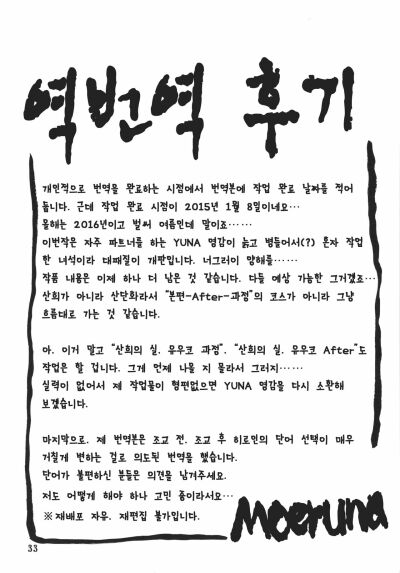 역번역 후기
개인적으로 번역을 완료하는 시점에서 번역본에 작업 완료 날짜를 적어
둡니다. 근데 작업 완료 시점이 2015년 1월 8일이네요…
올해는 2016년이고 벌써 여름인데 말이죠……
이번작은 자주 파트너를 하는 YUNA 영감이 늙고 병들어서(?) 혼자 작업
한 녀석이라 대패질이 개판입니다. 너그러이 양해를……
작품 내용은 이제 하나 더 남은 것 같습니다. 다들 예상 가능한 그거겠죠…
산희가 아니라 산단화라서 "본편-After-과정"의 코스가 아니라 그냥
흐름대로 가는 것 같습니다.
아. 이거 말고 "산희의 실. 유우코 과정". "산희의 실. 유우코 After"도
작업은 할 겁니다. 그게 언제 나올 지 몰라서 그러지……
실력이 없어서 제 작업물이 형편없으면 YUNA 영감을 다시 소환해
보겠습니다.
마지막으로. 제 번역본은 조교 전. 조교 후 히로인의 단어 선택이 매우
거칠게 변하는 걸로 의도된 번역을 했습니다.
단어가 불편하신 분들은 의견을 남겨주세요.
저도 어떻게 해야 하나 고민 중이라서요…
※ 재배포 자유. 재편집 불가입니다.
Moeruna
33